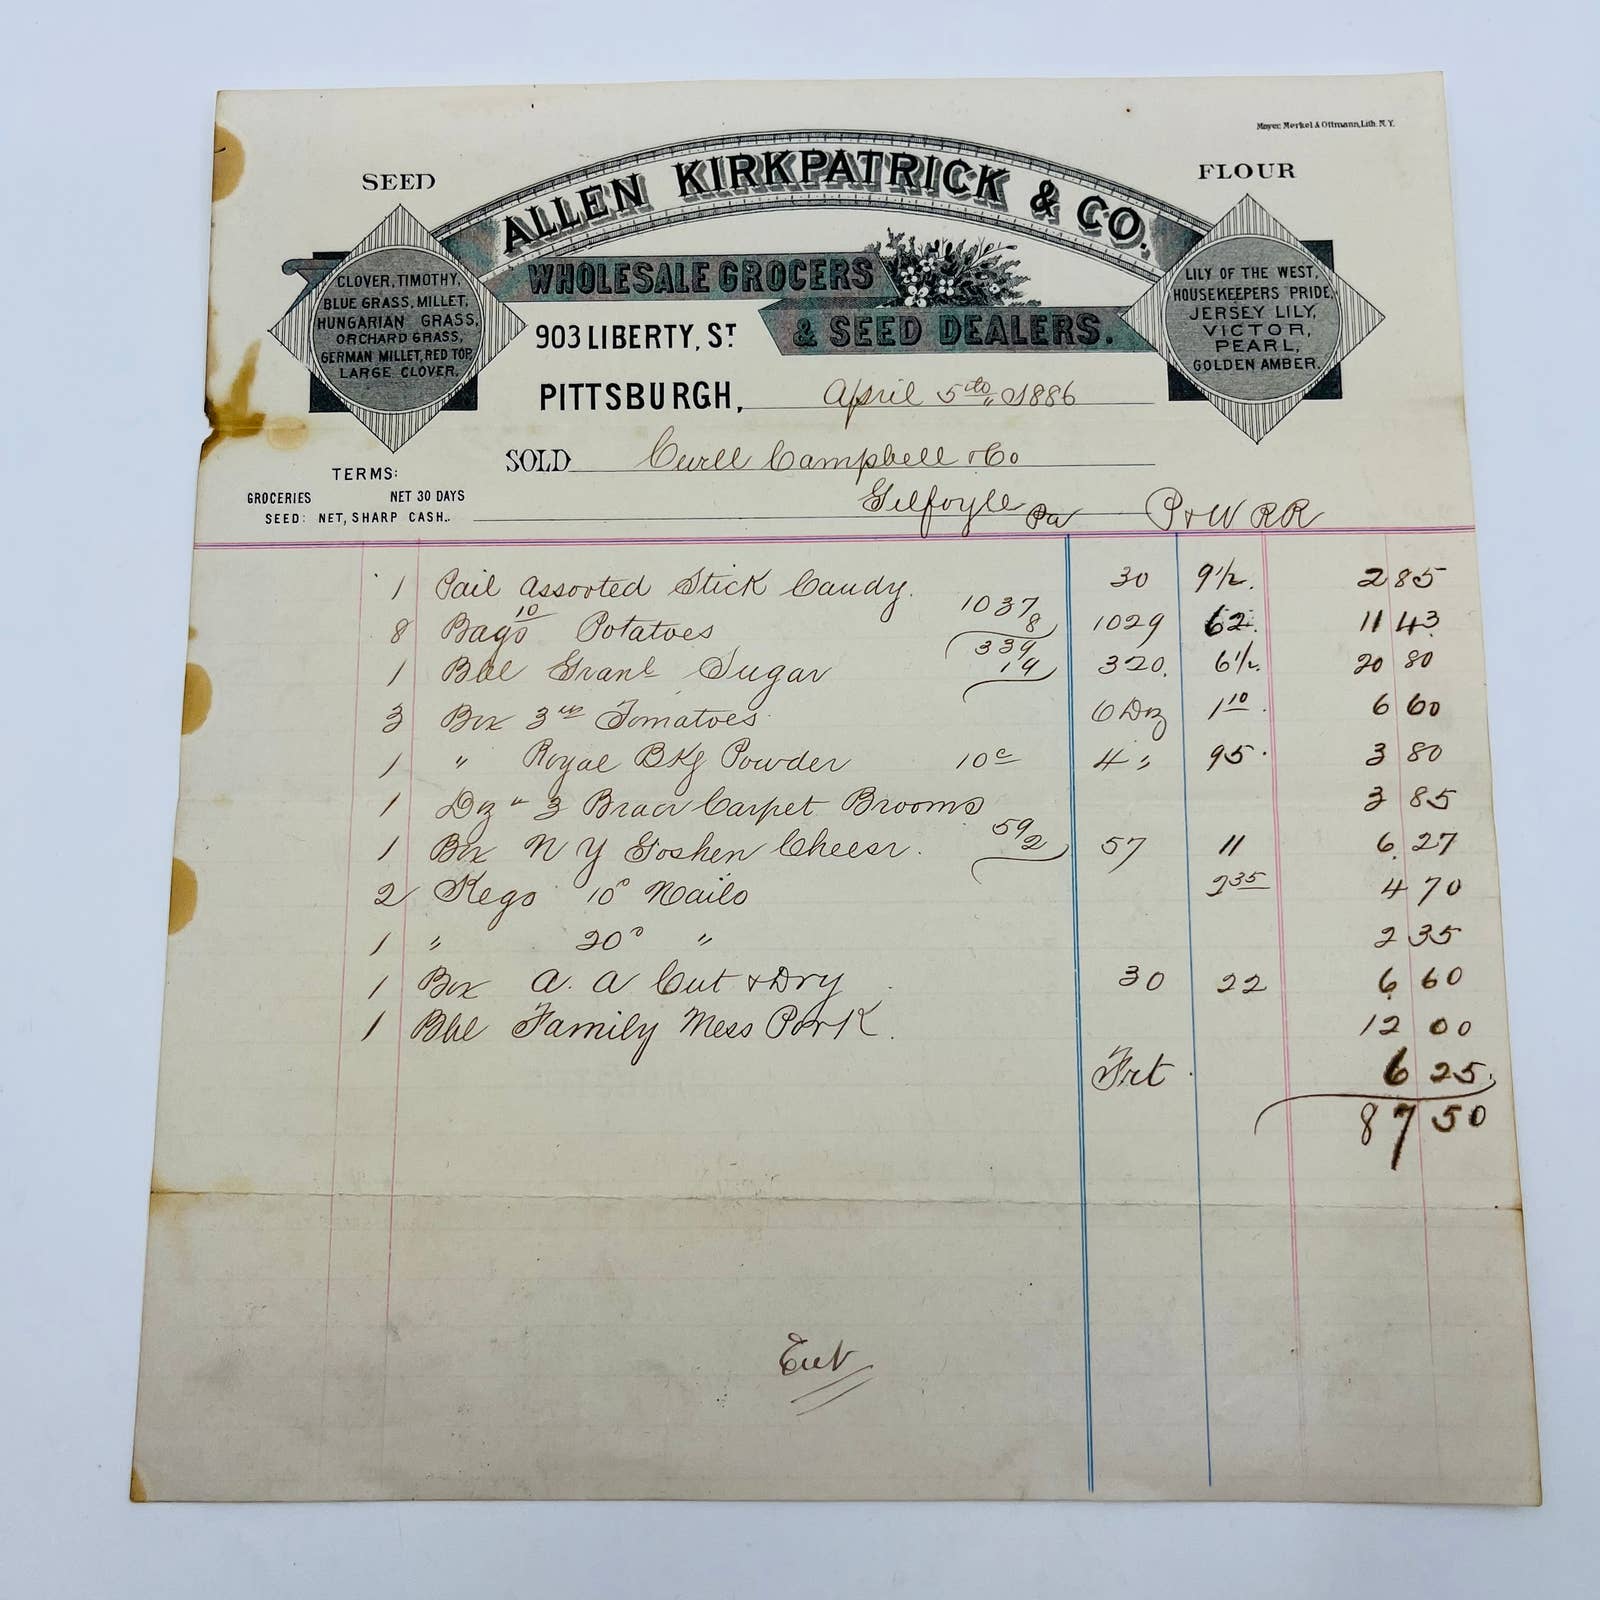 Mayer, Merkel & Ottmann, Lith. N.Y.
SEED
FLOUR
ALLEN KIRKPATRICK & CO.
WHOLESALE GROCERS
& SEED DEALERS.
CLOVER, TIMOTHY,
BLUE GRASS, MILLET,
HUNGARIAN GRASS,
ORCHARD GRASS,
GERMAN MILLET, RED TOP,
LARGE CLOVER.
LILY OF THE WEST,
HOUSEKEEPERS PRIDE,
JERSEY LILY,
VICTOR,
PEARL,
GOLDEN AMBER.
903 LIBERTY, ST
PITTSBURGH, April 5th 1886
SOLD Curll Campbell & Co
Gilfoyle Pa P & W RR
TERMS:
GROCERIES NET 30 DAYS
SEED: NET, SHARP CASH..
1 Pail Assorted Stick Candy. 30 9 1/2. 2 85
8 Bags 10 Potatoes 1037 8 1029 62. 11 43
1 Bbl Granl Sugar 339 19 320. 6 1/2. 20 80
3 Box 3 Tomatoes 6 Dz 1 10. 6 60
1 " Royal Bkg Powder 10c 4 " 95. 3 80
1 Dz " 3 Carpet Brooms 3 85
1 Box N Y Goshen Cheese. 59 2 57 11 6.27
2 Kegs 10d Nails 2 35 4 70
1 " 20d " 2 35
1 Box A. A Cut & Dry 30 22 6.60
1 Bbl Family Mess Pork. 12 00
Frt. 6 25
87 50